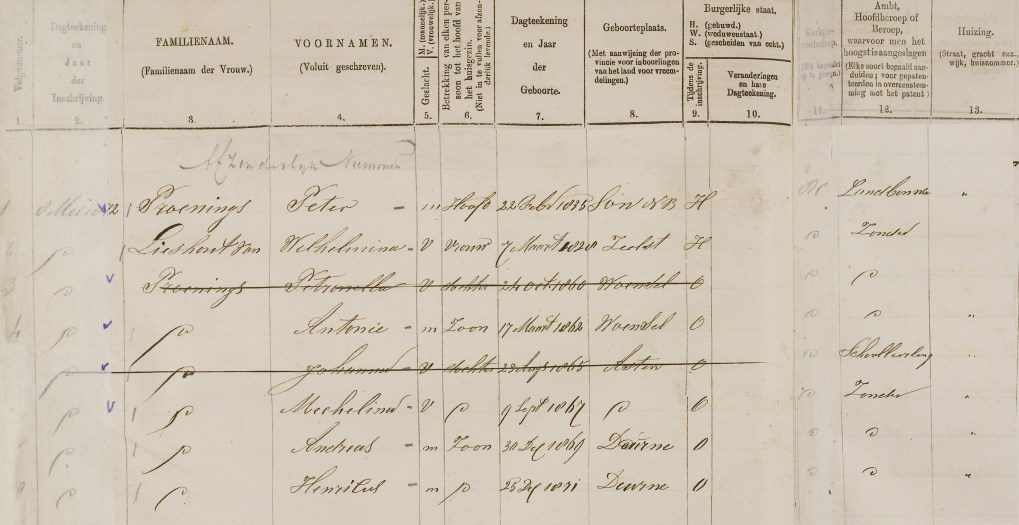 Volgnummer.
Dagteekening en Jaar der Inschrijving.
FAMILIENAAM.
(Familienaam der Vrouw.)
VOORNAMEN.
(Voluit geschreven).
Geslacht. M. (mannelijk.) V. (vrouwelijk.)
Betrekking van elken persoon tot het hoofd van het huisgezin. (Niet in te vullen voor afzonderlijk levende.)
Dagteekening en Jaar der Geboorte.
Geboorteplaats.
(Met aanwijzing der provincie voor inboorlingen van het land voor vreemdelingen.)
Burgerlijke staat.
H. (gehuwd.)
W. (weduwenstaat.)
S. (gescheiden van echt.)
Tijdens de inschrijving.
Veranderingen en hare Dagteekening.
Ambt, Hoofdberoep of Beroep, waarvoor men het hoogst is aangeslagen
(Elke soort bepaald aanduiden; voor gepatenteerden in overeenstemming met het patent)
Huizing.
(Straat, gracht enz., wijk, huisnommer.)
1. 2. 3. 4. 5. 6. 7. 8. 9. 10. 11. 12. 13.
Afzonderlijk Nummer
1 Peter - m Hoofd 22 Febr 1835 Son NB H „
Lieshout van Wilhelmina - V Vrouw 7 Maart 1828 Zeelst H Zonder
Petronella V dochter 24 oct 1860 Woensel O
Antonie - m Zoon 17 Maart 1862 Woensel O „
Johanna - V dochter 1865 Asten O „
Mechelina - V 9 Sept 1867 O Zonder „
Andreas - m Zoon 30 Dec 1869 Deurne O „
Henricus - m 23 Dec 1871 Deurne O „